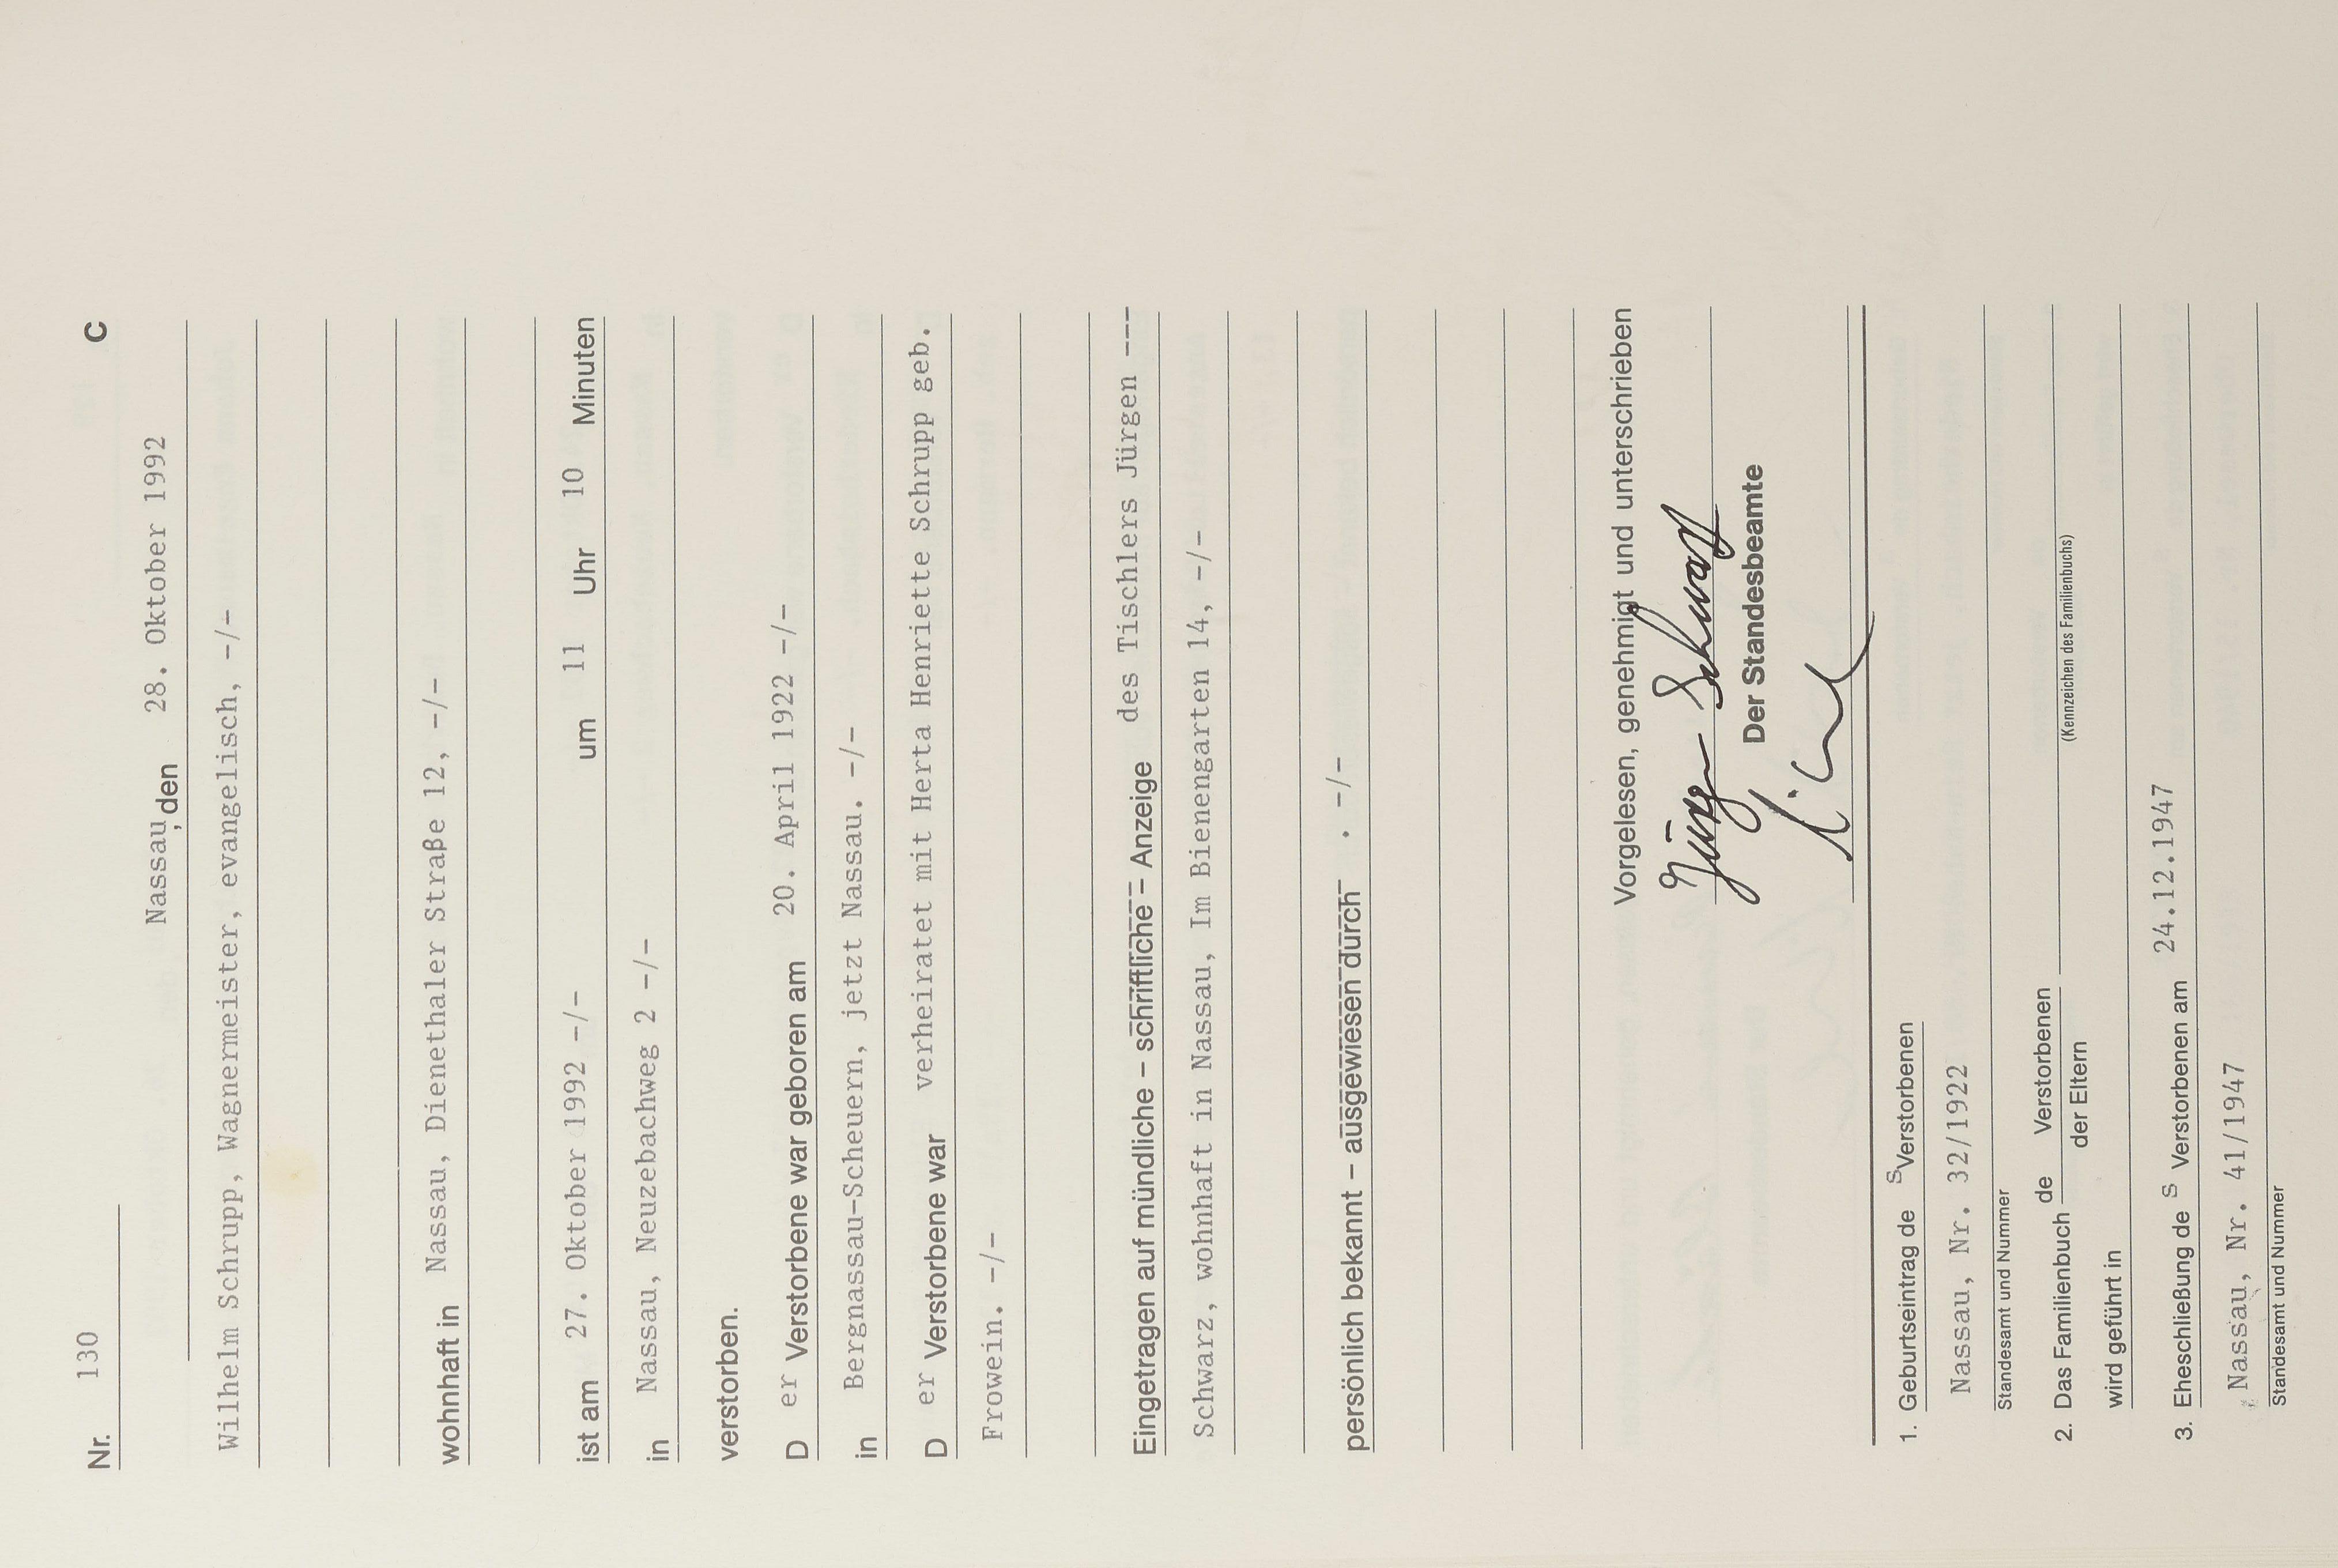 Nr. 130 C
Nassau, den 28. Oktober 1992
Wilhelm Schrupp, Wagnermeister, evangelisch, -/-
wohnhaft in Nassau, Dienethaler Straße 12, -/-
ist am 27. Oktober 1992 -/- um 11 Uhr 10 Minuten
in Nassau, Neuzebachweg 2 -/-
verstorben.
D er Verstorbene war geboren am 20. April 1922 -/-
in Bergnassau-Scheuern, jetzt Nassau. -/-
D er Verstorbene war verheiratet mit Herta Henriette Schrupp geb.
Frowein. -/-
Eingetragen auf mündliche – schriftliche – Anzeige des Tischlers Jürgen ---
Schwarz, wohnhaft in Nassau, Im Bienengarten 14, -/-
persönlich bekannt – ausgewiesen durch . -/-
Vorgelesen, genehmigt und unterschrieben
Jürgen Schwarz
Der Standesbeamte
1. Geburtseintrag de s Verstorbenen
Nassau, Nr. 32/1922
Standesamt und Nummer
2. Das Familienbuch de Verstorbenen
der Eltern
wird geführt in
(Kennzeichen des Familienbuchs)
3. Eheschließung de s Verstorbenen am 24.12.1947
Nassau, Nr. 41/1947
Standesamt und Nummer